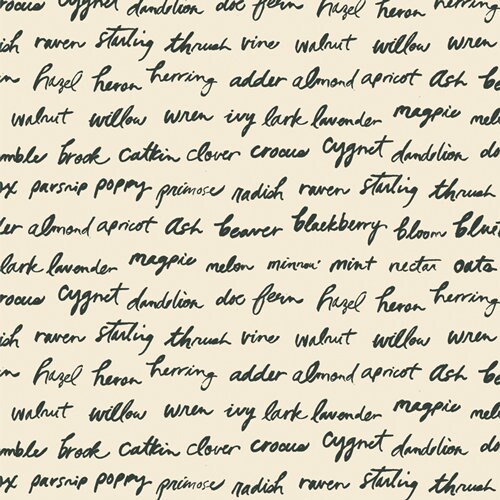 crocus cygnet dandelion doe fern hazel heron herring
radish raven starling thrush vine walnut willow wren
hazel heron herring adder almond apricot ash
walnut willow wren ivy lark lavender magpie
brook catkin clover crocus cygnet dandelion
parsnip poppy primose radish raven starling thrush
almond apricot ash beaver blackberry bloom
lark lavender magpie melon minnow mint nectar oats
cygnet dandelion doe fern hazel heron herring
raven starling thrush vine walnut willow wren
hazel heron herring adder almond apricot ash
walnut willow wren ivy lark lavender magpie
brook catkin clover crocus cygnet dandelion
parsnip poppy primose radish raven starling thrush